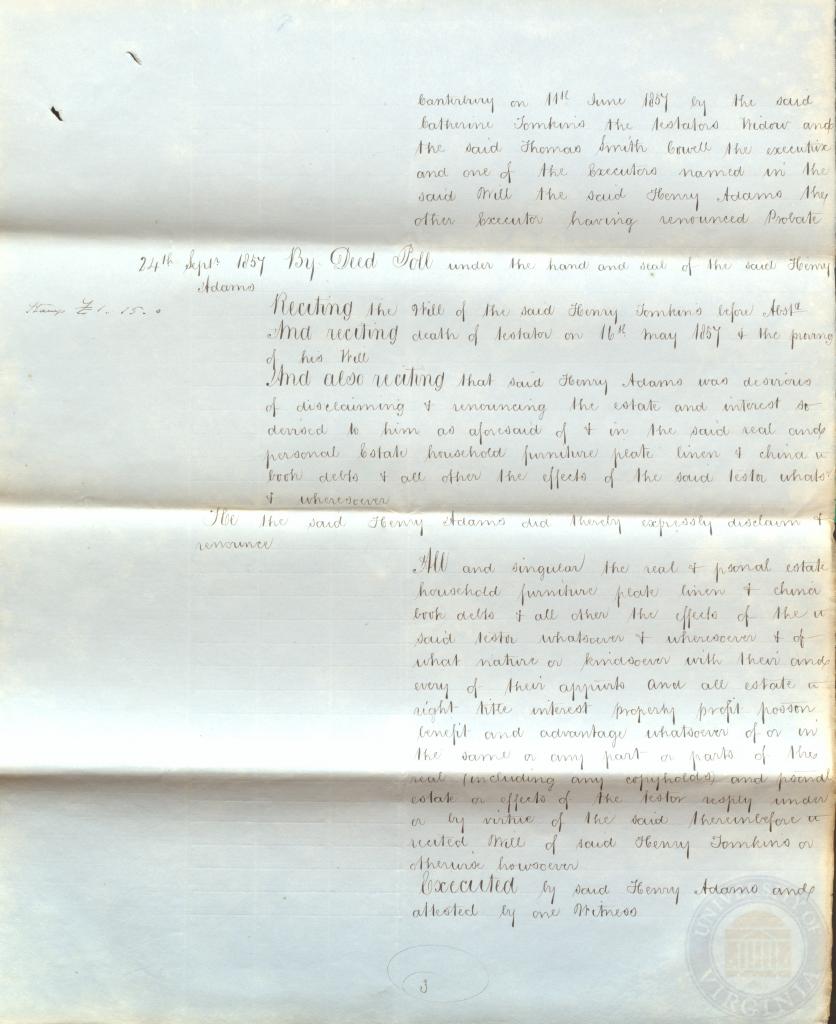 Canterbury on 11th June 1857 by the said
Catherine Tomkins the testators Widow and
the said Thomas Smith Cowell the executrix
and one of the Executors named in the
said Will the said Henry Adams the
other Executor having renounced Probate
24th Septr 1857 By Deed Poll under the hand and seal of the said Henry
Adams
Stamp £1. 15. 0
Reciting the Will of the said Henry Tomkins before Abstd
And reciting death of testator on 16th May 1857 & the proving
of his Will
And also reciting that said Henry Adams was desirous
of disclaiming & renouncing the estate and interest so
devised to him as aforesaid of & in the said real and
personal Estate household furniture plate linen & china
book debts & all other the effects of the said testor whatsr
& wheresoever
He the said Henry Adams did thereby expressly disclaim &
renounce
All and singular the real & psonal estate
household furniture plate linen & china
book debts & all other the effects of the
said testor whatsoever & wheresoever & of
what nature or kindsoever with their and
every of their appurts and all estate
right title interest property profit posson
benefit and advantage whatsoever of or in
the same or any part or parts of the
real (including any copyholds) and psonal
estate or effects of the testor resply under
or by virtue of the said thereinbefore
recited Will of said Henry Tomkins or
otherwise howsoever
Executed by said Henry Adams and
attested by one Witness
3
UNIVERSITY OF VIRGINIA